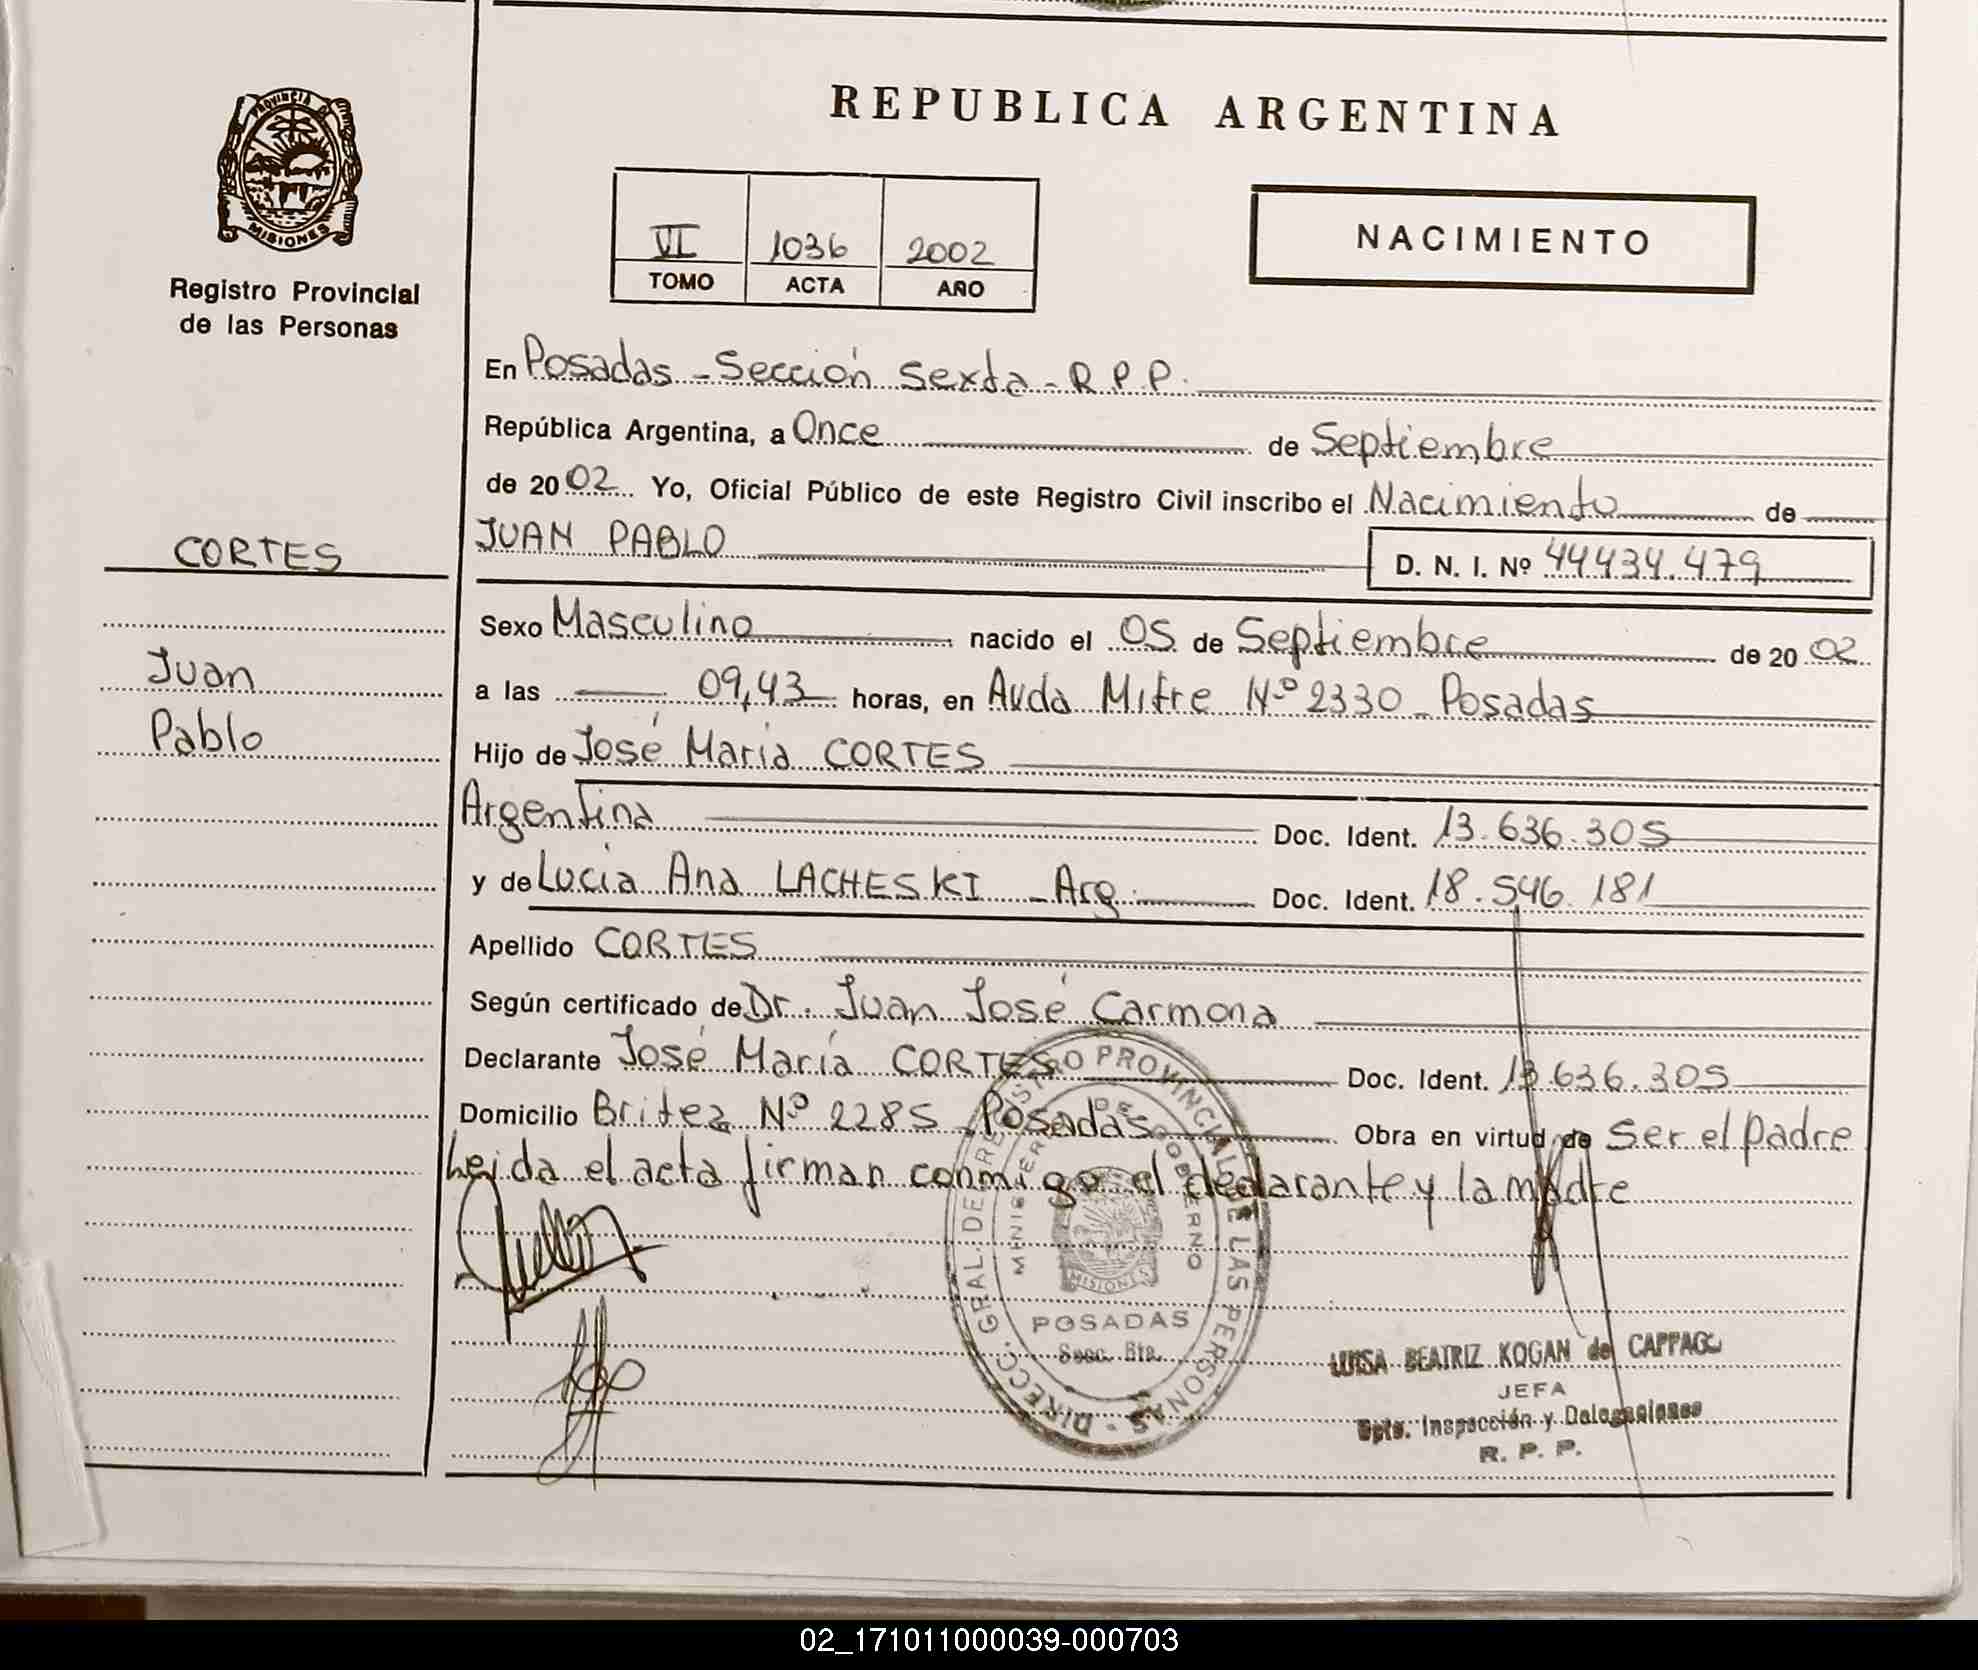 REPUBLICA ARGENTINA
PROVINCIA DE
MISIONES
Registro Provincial
de las Personas
VI 1036 2002
TOMO ACTA AÑO
NACIMIENTO
En Posadas - Sección Sexta - R.P.P.
República Argentina, a Once de Septiembre
de 2002 Yo, Oficial Público de este Registro Civil inscribo el Nacimiento de
CORTES
JUAN PABLO D. N. I. Nº 44434.479
Sexo Masculino nacido el 05 de Septiembre de 2002
Juan
a las 09,43 horas, en Avda Mitre Nº 2330 - Posadas
Pablo
Hijo de José María CORTES
Argentina Doc. Ident. 13.636.305
y de Lucía Ana LACHESKI - Arg. Doc. Ident. 18.546.181
Apellido CORTES
Según certificado de Dr. Juan José Carmona
Declarante José María CORTES Doc. Ident. 13.636.305
Domicilio Britez Nº 2285 - Posadas Obra en virtud de Ser el padre
Leida el acta firman conmigo el declarante y la madre
DIRECC. GRAL. DE REGISTRO PROVINCIAL DE LAS PERSONAS
MINISTERIO DE GOBIERNO
MISIONES
POSADAS
Secc. 6ta.
LUISA BEATRIZ KOGAN de
JEFA
Dpto. Inspección y Delegaciones
R. P. P.
02_171011000039-000703